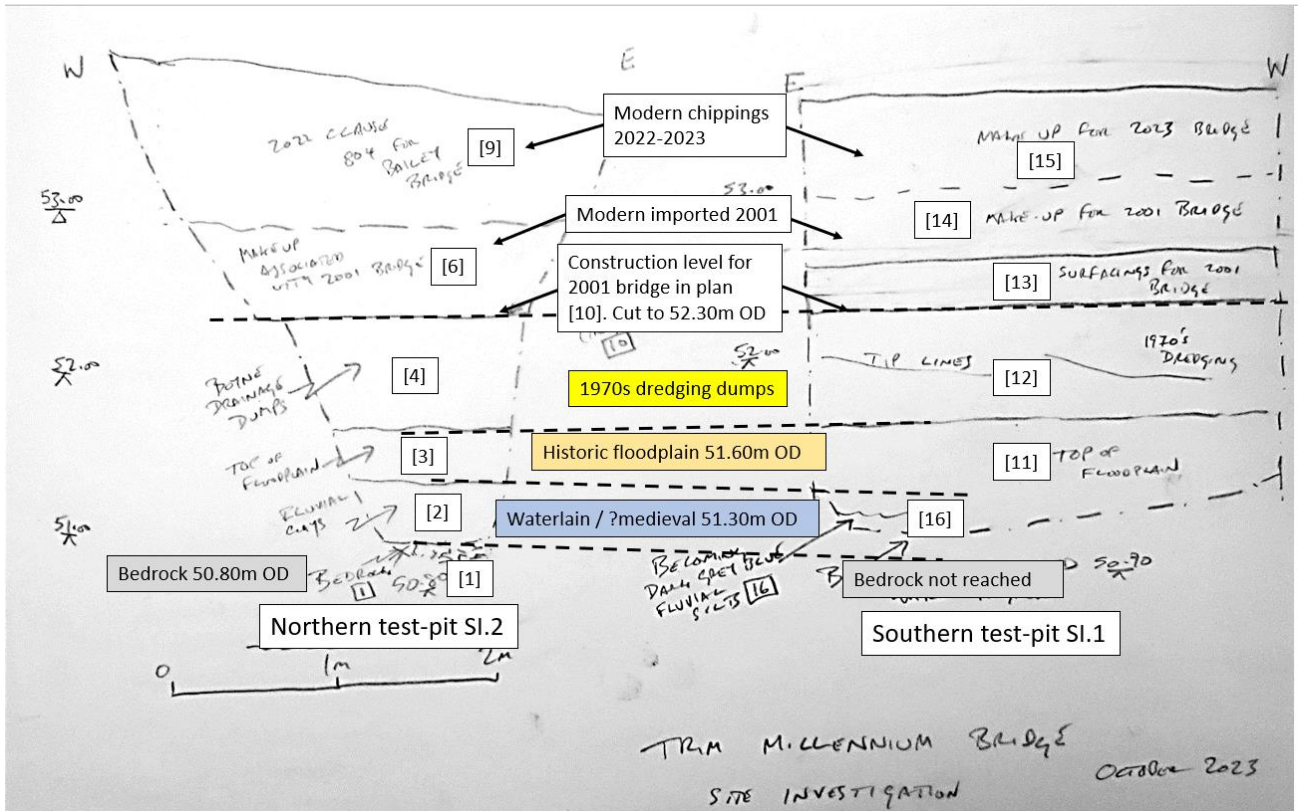 W
E
E
W
Modern chippings
2022-2023
2022 CLAUSE
804 FOR
BAILEY
BRIDGE
[9]
MAKE UP FOR 2023 BRIDGE
[15]
53.00
53.00
Modern imported 2001
[14]
MAKE-UP FOR 2001 BRIDGE
MAKEUP
ASSOCIATED
WITH 2001 BRIDGE
[6]
Construction level for
2001 bridge in plan
[10]. Cut to 52.30m OD
[13]
SURFACINGS FOR 2001
BRIDGE
10
52.00
52.00
TIP LINES
1970's
DREDGING
BOYNE
DRAINAGE
DUMPS
[4]
1970s dredging dumps
[12]
TOP OF
FLOODPLAIN
[3]
Historic floodplain 51.60m OD
[11]
TOP OF
FLOODPLAIN
FLUVIAL
CLAYS
[2]
51.00
Waterlain / ?medieval 51.30m OD
[16]
Bedrock 50.80m OD
BEDROCK
1
50.80
[1]
BECOMING
DARK GREY BLUE
FLUVIAL
SILTS 16
Bedrock not reached
50.90
Northern test-pit SI.2
Southern test-pit SI.1
0
1m
2m
TRIM MILLENNIUM BRIDGE
OCTOBER 2023
SITE INVESTIGATION